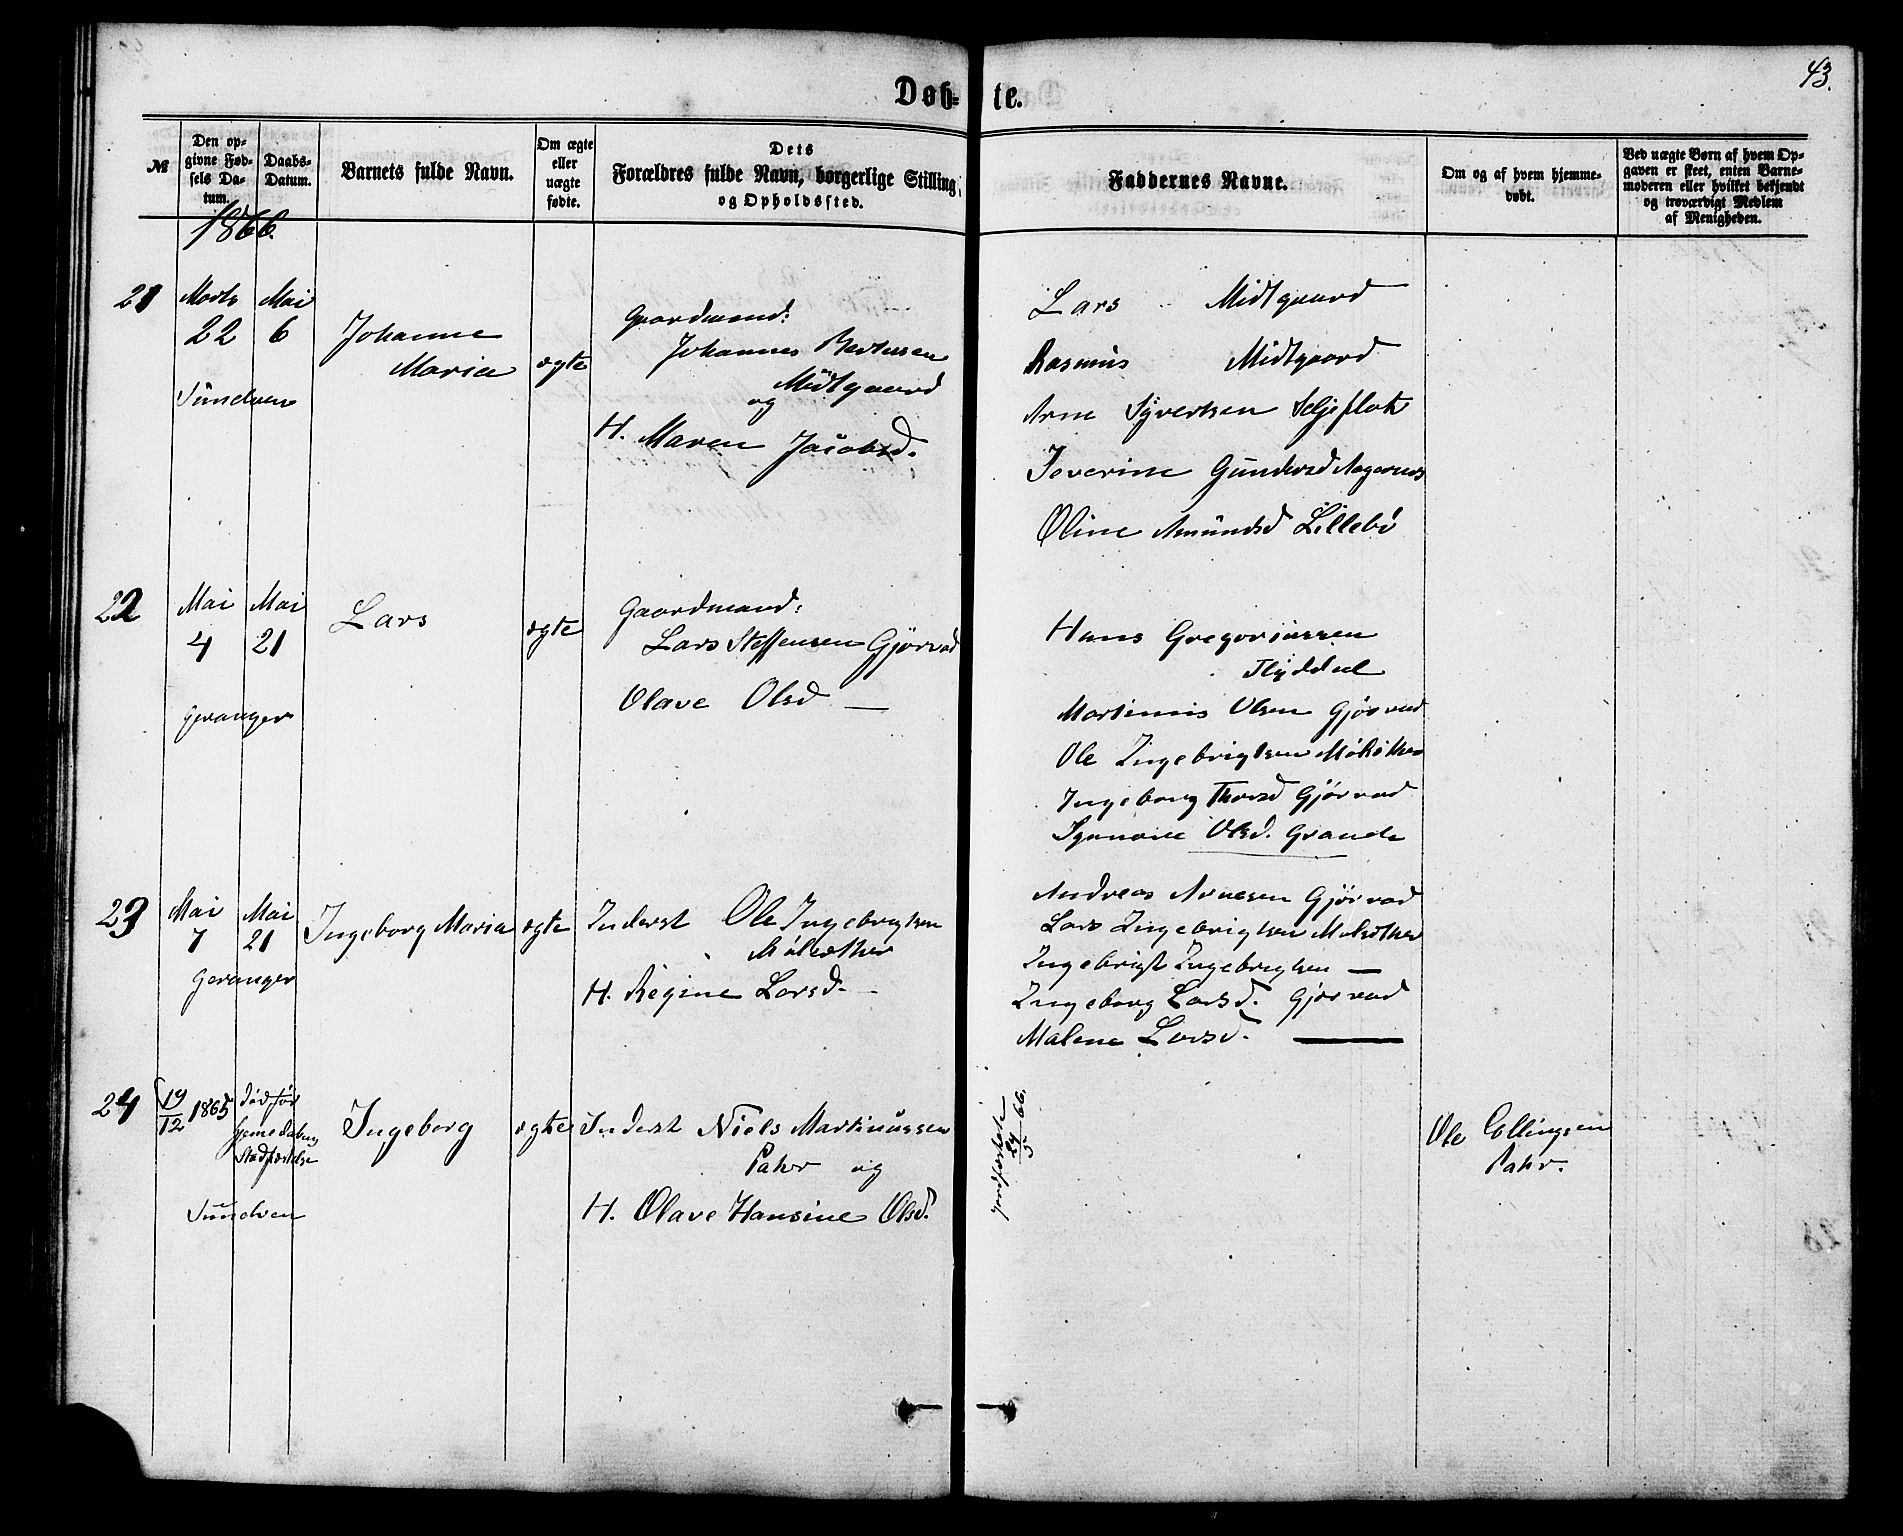 43.
Døb-te.
№
Den op-
givne Fød-
sels Da-
tum.
Daabs-
Datum.
Barnets fulde Navn.
Om ægte
eller
uægte
fødte.
Dets
Forældres fulde Navn, borgerlige Stilling
og Opholdssted.
Faddernes Navne.
Om og af hvem hjemme-
døbt.
Ved uægte Børn af hvem Op-
gaven er skeet, enten Barne-
moderen eller hvilket bekjendt
og troværdigt Medlem
af Menigheden.
1866.
21
Marts
22
Mai
6
Sündven
Johanne
Maria
ægte
Gaardmand:
Johannes Bertussen
Midtgaard
og
H. Maren Jacobsd.
Lars Midtgaard
Rasmus Midtgaard
Arne Syvertsen Seljeflot
Severine Gundersd
Oline Amündsd Lillebö
22
Mai
4
Mai
21
Geranger
Lars
ægte
Gaardmand:
Lars Steffensen Gjørvad
Olave Olsd —
Hans Gregoriussen
Flyddal
Martinus Olsen Gjørvad
Ole Ingebrigtsen
Ingeborg Gjørvad
Synnøve Olsd. Grande
23
Mai
7
Mai
21
Geranger
Ingeborg Maria
ægte
Inderst Ole Ingebrigtsen
H. Regine Larsd.
Andreas Arnesen Gjørvad
Lars Ingebrigtsen
Ingebrigt Ingebrigtsen —
Ingeborg Larsd. Gjørvad
Malene Larsd. —
24
19/12 1865
død før
Hjemedaabens
Stadfæstelse
Sündven
Ingeborg
ægte
Inderst Niels Martinussen
Pahr og
H. Olave Hansine Olsd.
24/5 66.
Ole Ellingsen
Pahr.